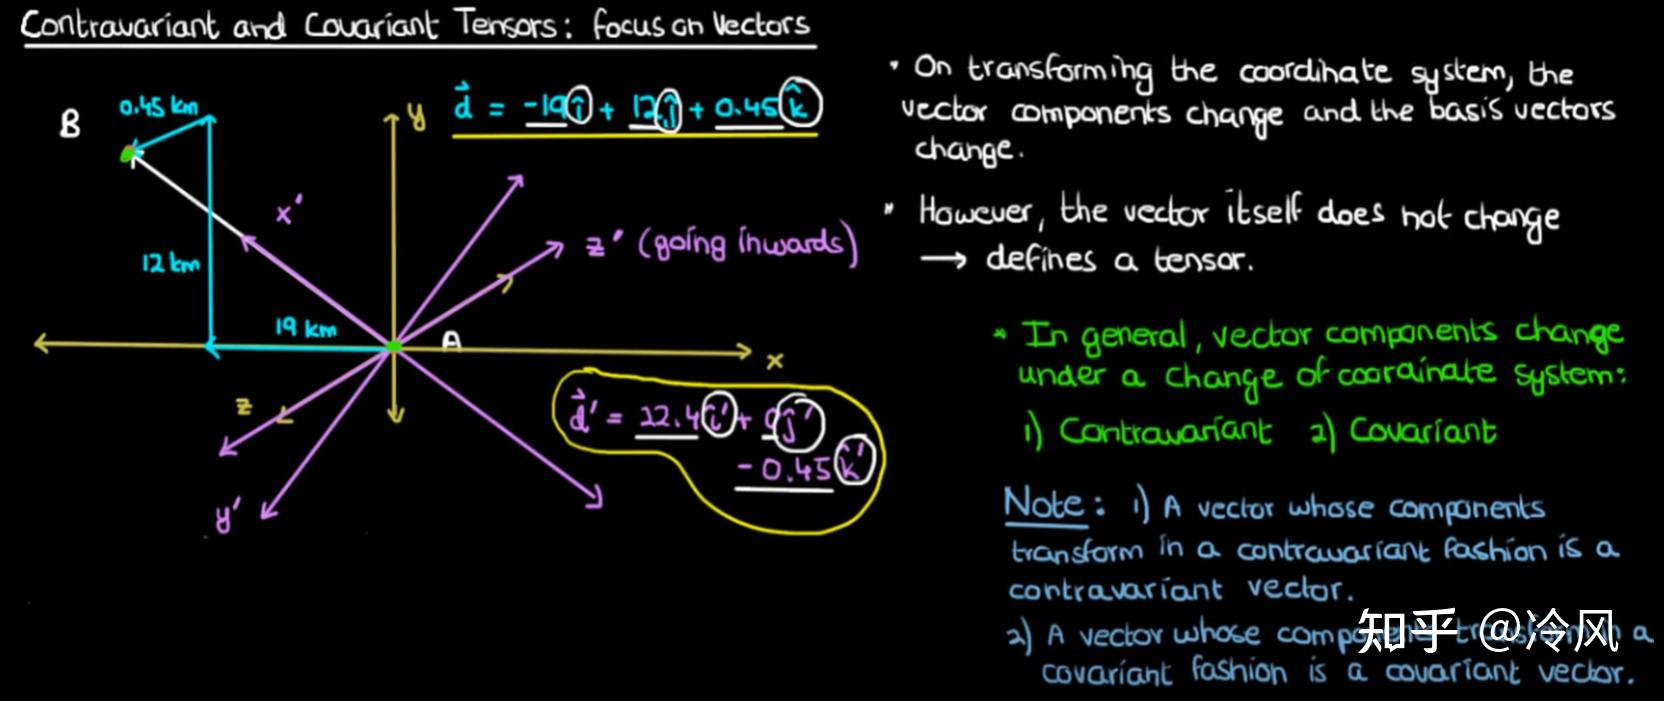 Contravariant and Covariant Tensors: focus on Vectors
B
0.45 km
12 km
19 km
A
x
y
z
x'
y'
z' (going inwards)
d⃗ = -19î + 12ĵ + 0.45k̂
d⃗' = 22.4î' + 0ĵ'
- 0.45k̂'
• On transforming the coordinate system, the
vector components change and the basis vectors
change.
* However, the vector itself does not change
→ defines a tensor.
* In general, vector components change
under a change of coordinate system:
1) Contravariant 2) Covariant
Note: 1) A vector whose components
transform in a contravariant fashion is a
contravariant vector.
2) A vector whose components transform in a
covariant fashion is a covariant vector.
知乎 @冷风